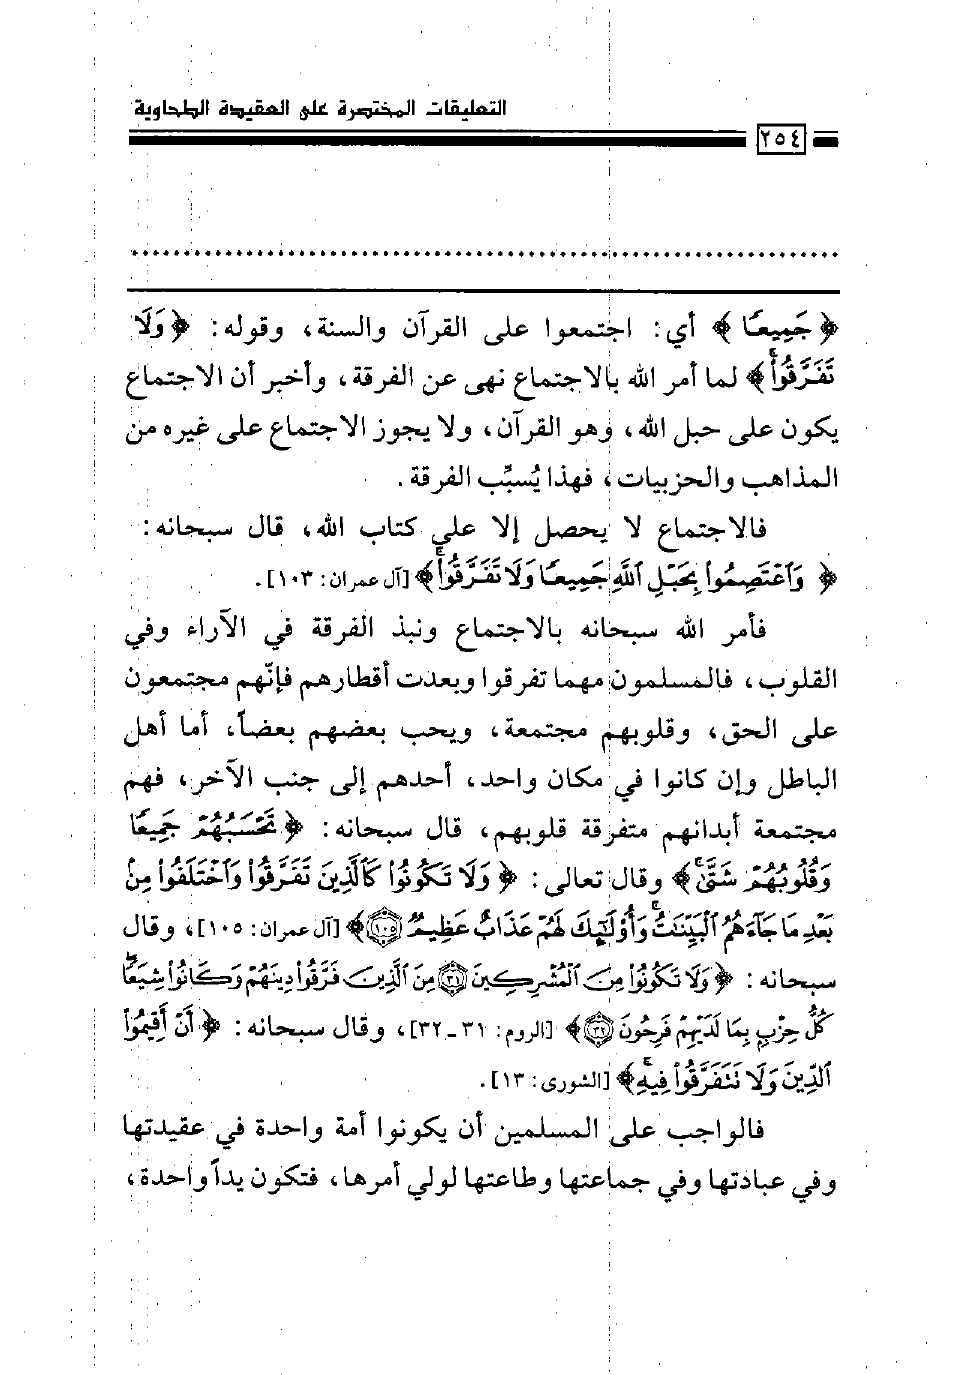 التعليقات المختصرة على العقيدة الطحاوية
٢٥٤
﴿جَمِيعًا﴾ أي: اجتمعوا على القرآن والسنة، وقوله: ﴿وَلَا
تَفَرَّقُوا۟ۚ﴾ لما أمر الله بالاجتماع نهى عن الفرقة، وأخبر أن الاجتماع
يكون على حبل الله، وهو القرآن، ولا يجوز الاجتماع على غيره من
المذاهب والحزبيات، فهذا يُسبِّب الفرقة.
فالاجتماع لا يحصل إلا على كتاب الله، قال سبحانه:
﴿وَٱعْتَصِمُوا۟ بِحَبْلِ ٱللَّهِ جَمِيعًا وَلَا تَفَرَّقُوا۟ۚ﴾ [آل عمران: ١٠٣].
فأمر الله سبحانه بالاجتماع ونبذ الفرقة في الآراء وفي
القلوب، فالمسلمون مهما تفرقوا وبعدت أقطارهم فإنّهم مجتمعون
على الحق، وقلوبهم مجتمعة، ويحب بعضهم بعضاً، أما أهل
الباطل وإن كانوا في مكان واحد، أحدهم إلى جنب الآخر، فهم
مجتمعة أبدانهم متفرقة قلوبهم، قال سبحانه: ﴿تَحْسَبُهُمْ جَمِيعًا
وَقُلُوبُهُمْ شَتَّىٰۚ﴾ وقال تعالى: ﴿وَلَا تَكُونُوا۟ كَٱلَّذِينَ تَفَرَّقُوا۟ وَٱخْتَلَفُوا۟ مِنۢ
بَعْدِ مَا جَآءَهُمُ ٱلْبَيِّنَٰتُۚ وَأُو۟لَٰٓئِكَ لَهُمْ عَذَابٌ عَظِيمٌ ١٠٥﴾ [آل عمران: ١٠٥]، وقال
سبحانه: ﴿وَلَا تَكُونُوا۟ مِنَ ٱلْمُشْرِكِينَ ٣١ مِنَ ٱلَّذِينَ فَرَّقُوا۟ دِينَهُمْ وَكَانُوا۟ شِيَعًاۖ
كُلُّ حِزْبٍۭ بِمَا لَدَيْهِمْ فَرِحُونَ ٣٢﴾ [الروم: ٣١ـ٣٢]، وقال سبحانه: ﴿أَنْ أَقِيمُوا۟
ٱلدِّينَ وَلَا تَتَفَرَّقُوا۟ فِيهِۚ﴾ [الشورى: ١٣].
فالواجب على المسلمين أن يكونوا أمة واحدة في عقيدتها
وفي عبادتها وفي جماعتها وطاعتها لولي أمرها، فتكون يداً واحدة،